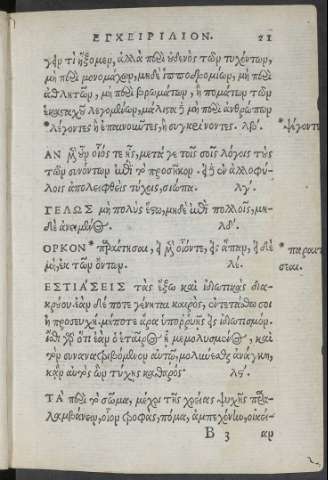 ΕΓΧΕΙΡΙΔΙΟΝ. 21
γάρ τι ἥξομεν, ἀλλὰ περὶ οὐδενὸς τῶν τυχόντων,
μὴ περὶ μονομαχιῶν, μηδὲ ἱπποδρομίων, μὴ περὶ
ἀθλητῶν, μὴ περὶ βρωμάτων, ἢ πομάτων τῶν
ἑκασταχοῦ λεγομένων, μάλιστα ἢ μὴ περὶ ἀνθρώπων
*λέγοντες ἢ ἐπαινοῦντες, ἢ συγκρίνοντες. λβ΄. *ψέγοντες.
ΑΝ μὲν οὖν οἷός τε ᾖς, μετάγε τοῖς σοῖς λόγοις τοὺς
τῶν συνόντων ἐπὶ τὸ προσῆκον. εἰ δὲ ἐν ἀλλοφύ-
λοις ἀποληφθεὶς τύχοις, σιώπα. λγ΄.
ΓΕΛΩΣ μὴ πολὺς ἔστω, μηδὲ ἐπὶ πολλοῖς, μη-
δὲ ἀνειμένος. λδ΄.
ΟΡΚΟΝ *πράτησαι, εἰ μὲν οἷόντε, εἰς ἅπαν, εἰ δὲ *παραιτη
μὴ, ἐκ τῶν ὄντων. λε΄. σαι.
ΕΣΤΙΑΣΕΙΣ τὰς ἔξω καὶ ἰδιωτικὰς δια-
κρούου. ἐὰν δέ ποτε γένηται καιρὸς, ἐντετάσθω σοι
ἡ προσευχὴ, μήποτε ἄρα ὑπορρυῇς εἰς ἰδιωτισμόν.
ἴσθι γὰρ ὅτι ἐὰν ὁ ἑταῖρος ᾖ μεμολυσμένος, καὶ
τὸν συνανατριβόμενον αὐτῷ, μολύνεσθαι ἀνάγκη,
κἂν αὐτὸς ὢν τύχῃ καθαρός. λϛ΄.
ΤΑ περὶ τὸ σῶμα, μέχρι τῆς χρείας ψυχῆς πα-
λαμβάνειν, οἷον τροφὰς, πόμα, ἀμπεχόνιον, οἰκεί-
B 3 αν